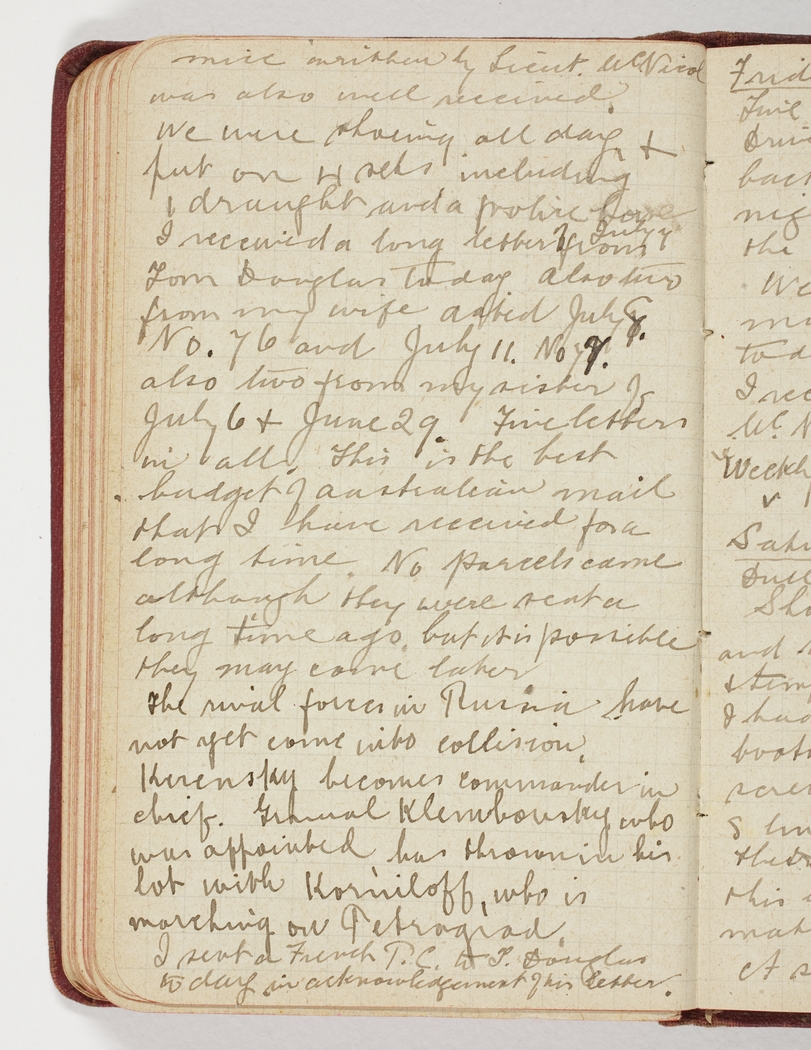 written by Lieut. McNicol
was also well received.
We were shoeing all day, &
put on 4 sets including
1 draught and a police horse
I received a long letter of July 7 from
Tom Douglas today also two
from my wife dated July 8.
No. 76 and July 11. No 77.
also two from my sister of
July 6 & June 29. Five letters
in all. This is the best
budget of Australian mail
that I have received for a
long time. No parcels came
although they were sent a
long time ago but it is possible
they may come later
The rival forces in Russia have
not yet come into collision.
Kerensky becomes commander in
chief. General Klembovsky, who
was appointed has thrown in his
lot with Korniloff, who is
marching on Petrograd
I sent a French P.C. to T. Douglas
to day in acknowledgement of his letter.
Frid
Fine
back
the
We
tod
I rec
Mc N
Weekly
Satu
Dull
Sh
and
I had
boots
this
mat